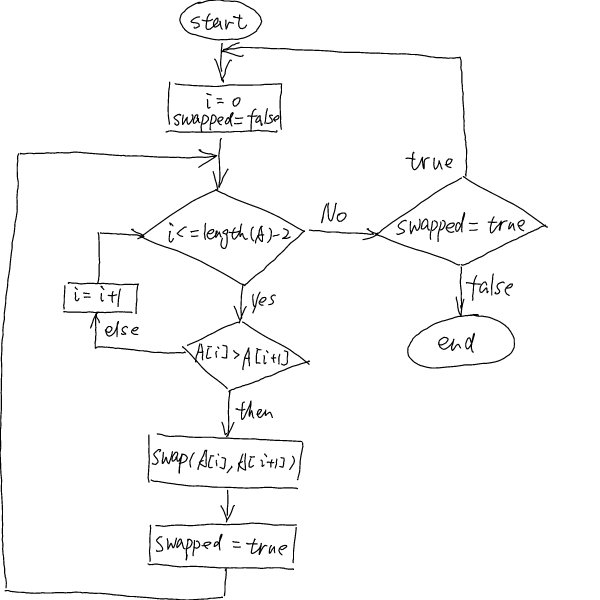 start
i = 0
swapped = false
true
i <= length(A) - 2
No
swapped = true
i = i+1
yes
false
else
A[i] > A[i+1]
end
then
swap(A[i], A[i+1])
swapped = true